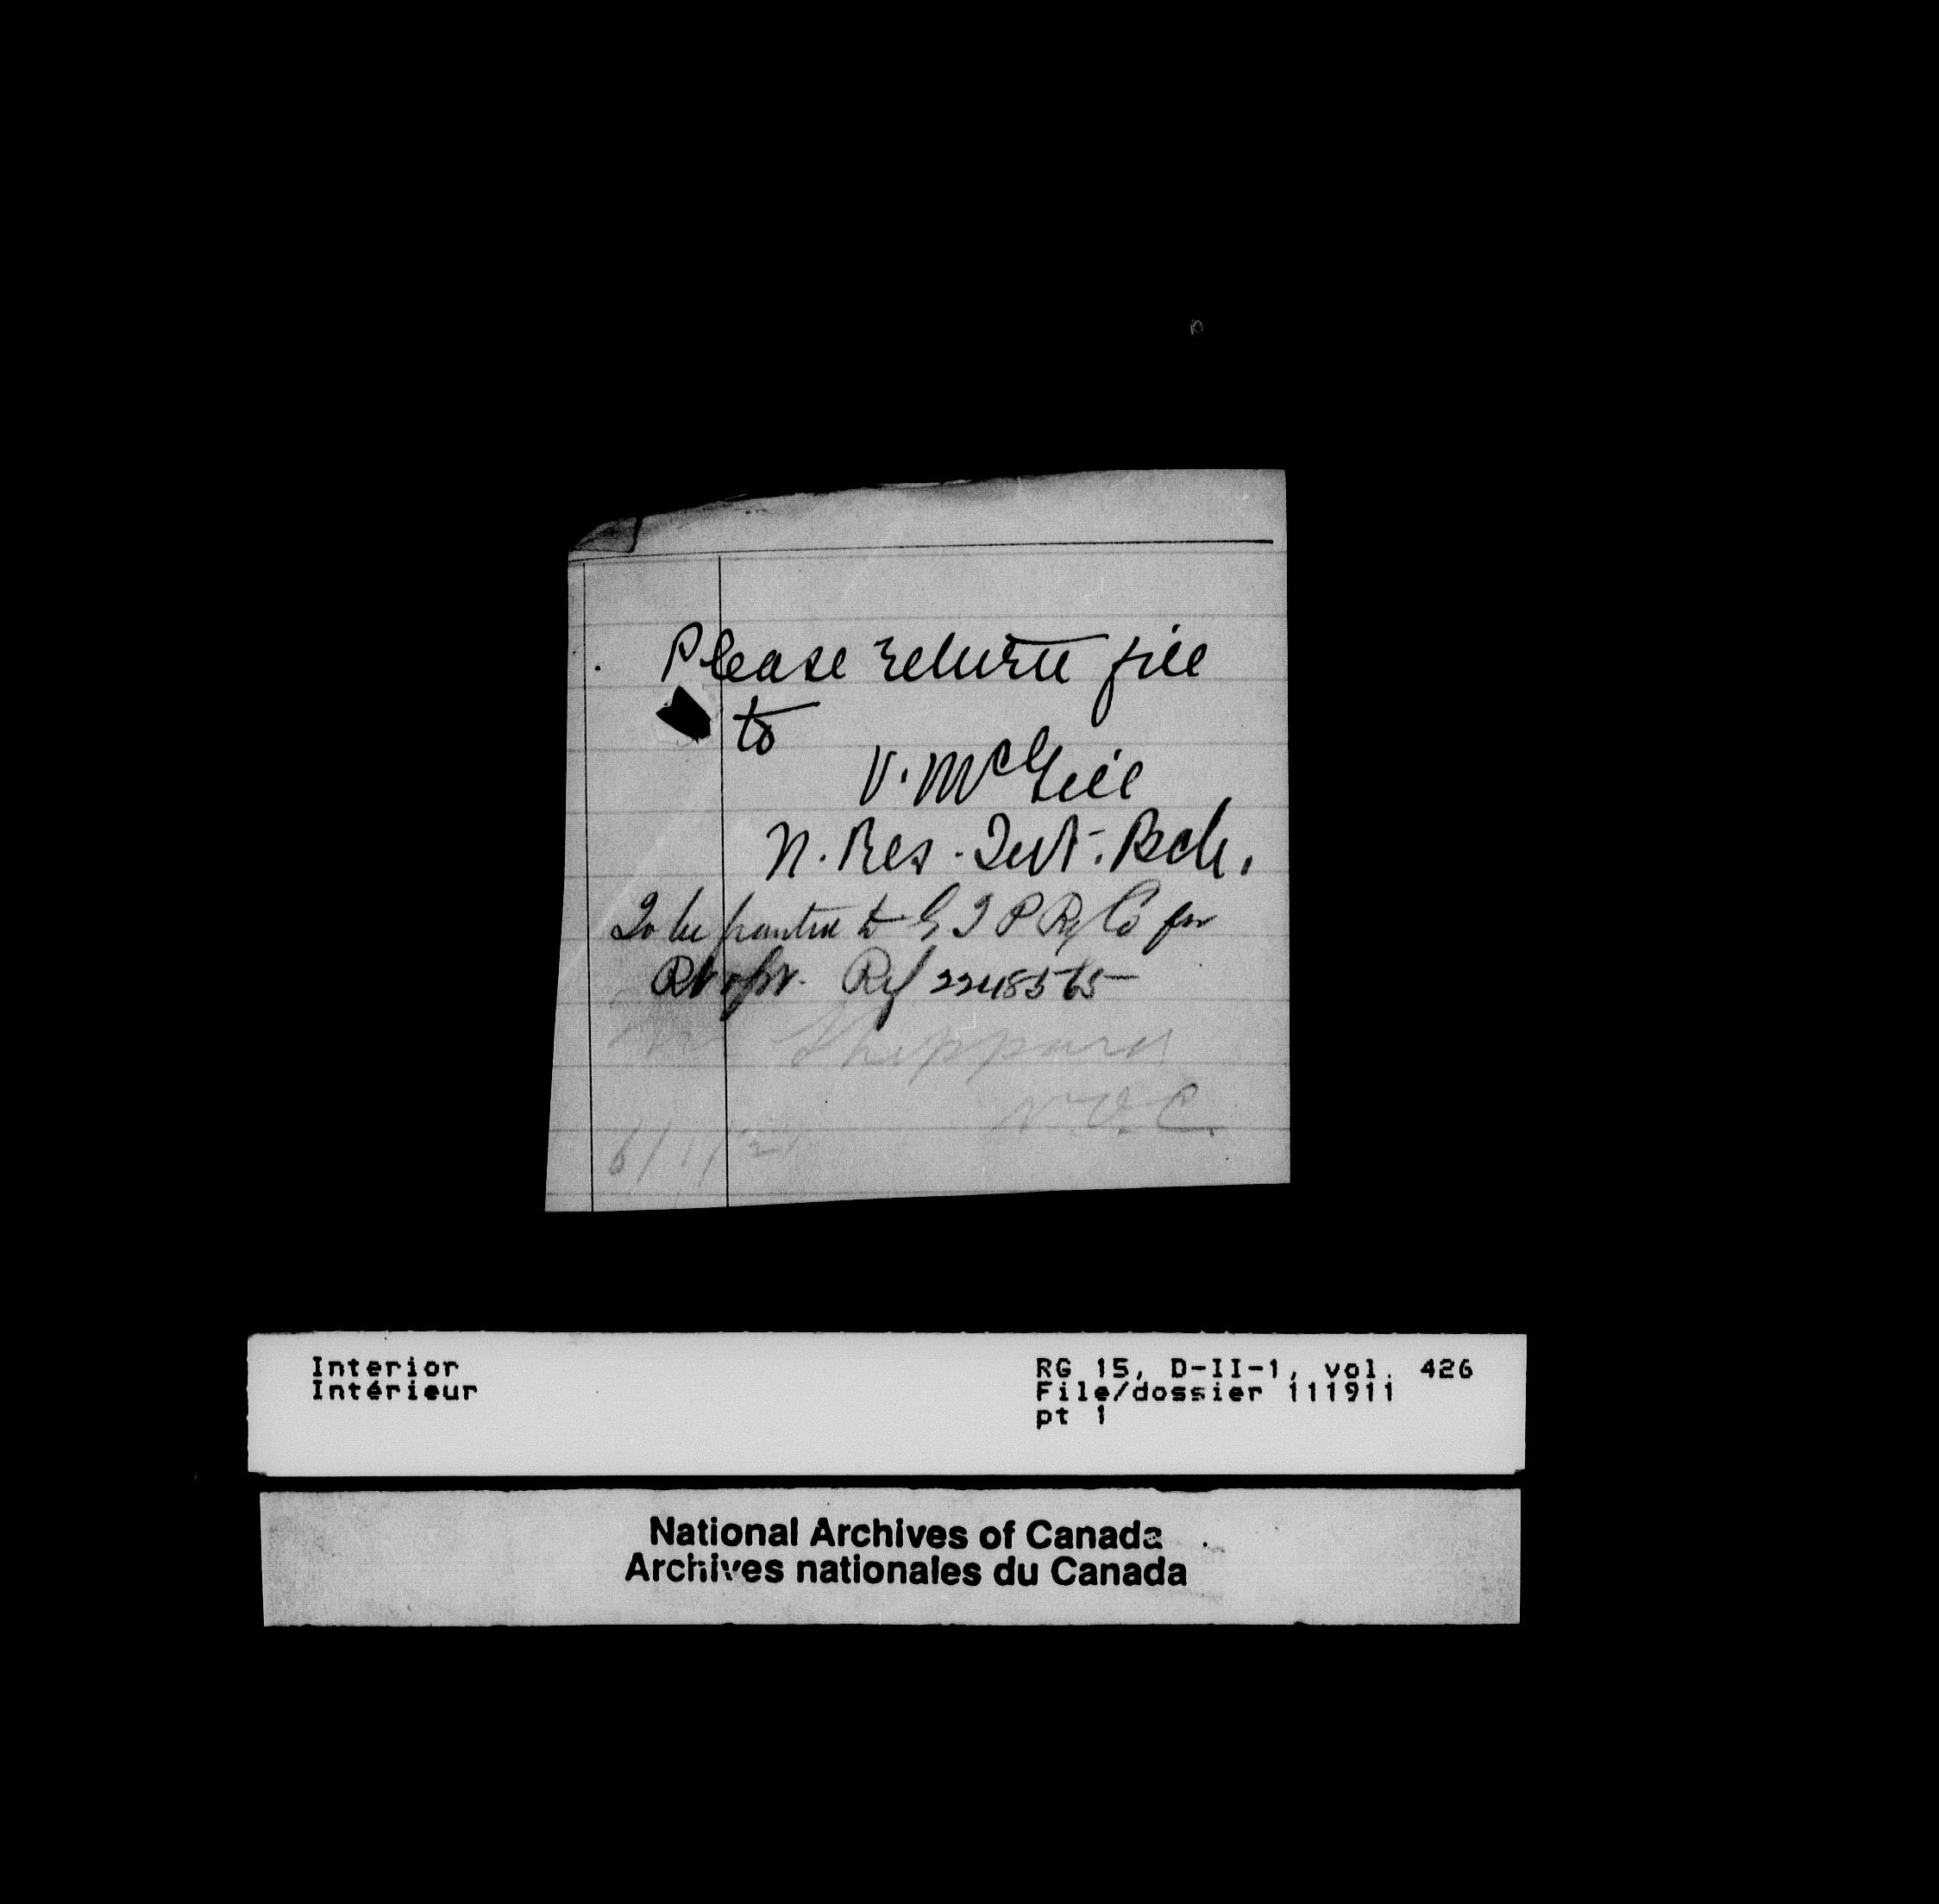 Please return file
to
V. McGill
N. Res. Int. Bch.
To be granted to G T P Ry Co for
Rt of W. Ref 2248565
Mr Sheppard
N.O.C.
6/1/21
Interior
Intérieur
RG 15, D-II-1, vol. 426
File/dossier 111911
pt 1
National Archives of Canada
Archives nationales du Canada